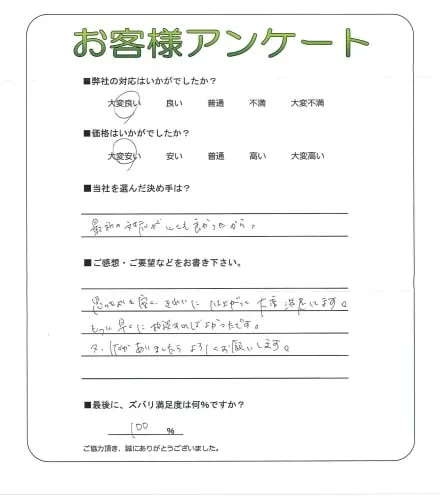 お客様アンケート
■弊社の対応はいかがでしたか?
大変良い 良い 普通 不満 大変不満
■価格はいかがでしたか?
大変安い 安い 普通 高い 大変高い
■当社を選んだ決め手は?
最初の対応がとても良かったから。
■ご感想・ご要望などをお書き下さい。
思ったよりも安く、きれいに仕上がって大変満足してます。
もっと早くに相談すればよかったです。
又、何かありましたらよろしくお願いします。
■最後に、ズバリ満足度は何%ですか?
100 %
ご協力頂き、誠にありがとうございました。